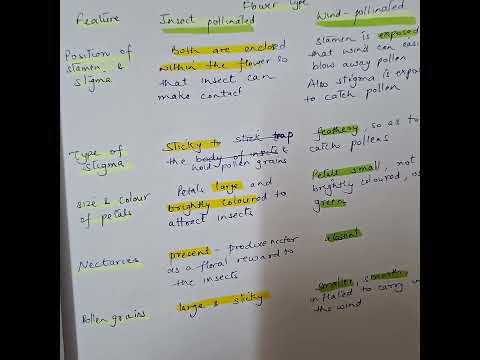 Flower type
Feature Insect pollinated Wind-pollinated
Position of stamen & stigma
Both are enclosed
within the flower so
that insect can
make contact
stamen is exposed
that wind can easi
blow away pollen
Also stigma is expo
to catch pollen
Type of stigma
Sticky to stick
the body of insects
hold pollen grains
feathery, so as to
catch pollens
size & colour
of petals
Petals large and
brightly coloured to
attract insects
Petals small, not
brightly coloured,
green
Nectaries
present - produce nectar
as a floral reward to
the insects
absent
Pollen grains
large & sticky
smaller, smooth,
inflated to carry
the wind